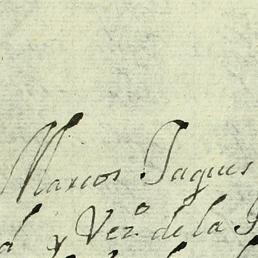 Marcos Jaques
y Vez.º de la